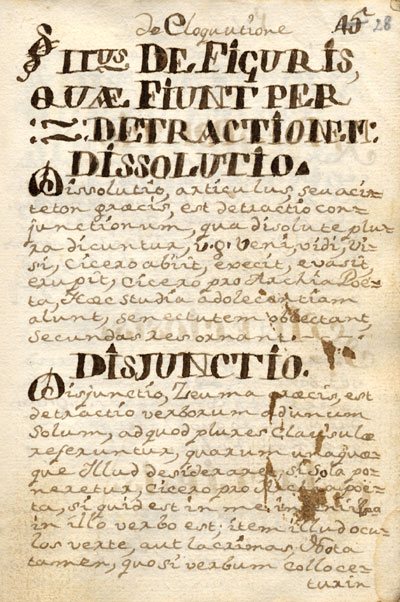 de Eloquutione
45 28
§ IIus DE FIGURIS,
QUÆ FIUNT PER
DETRACTIONEM:
DISSOLUTIO.
Dissolutio, articulus, seu acis-
teton græcis, est detractio con-
junctionum, qua disolute plu-
ra dicuntur, v.g. veni, vidi, vi-
si, Cicero abiit, execit, evasit,
erupit, Cicero pro Archia Poë-
ta, Hæc studia adolecentiam
alunt, senectutem oblectant,
secundas res ornant.
DISJUNCTIO.
Disjunctio, Zeuma græcis, est
detractio verborum adjuncum
solum, ad quod plures Clausulæ
referuntur, quarum unaquæ-
que illud desideraret, si sola po-
neretur, Cicero pro Poë-
ta, si quid est in me
in illo verbo est; item illud ocu-
los verte, aut lacrimas, Nota
tamen, quo si verbum colloce-
turin